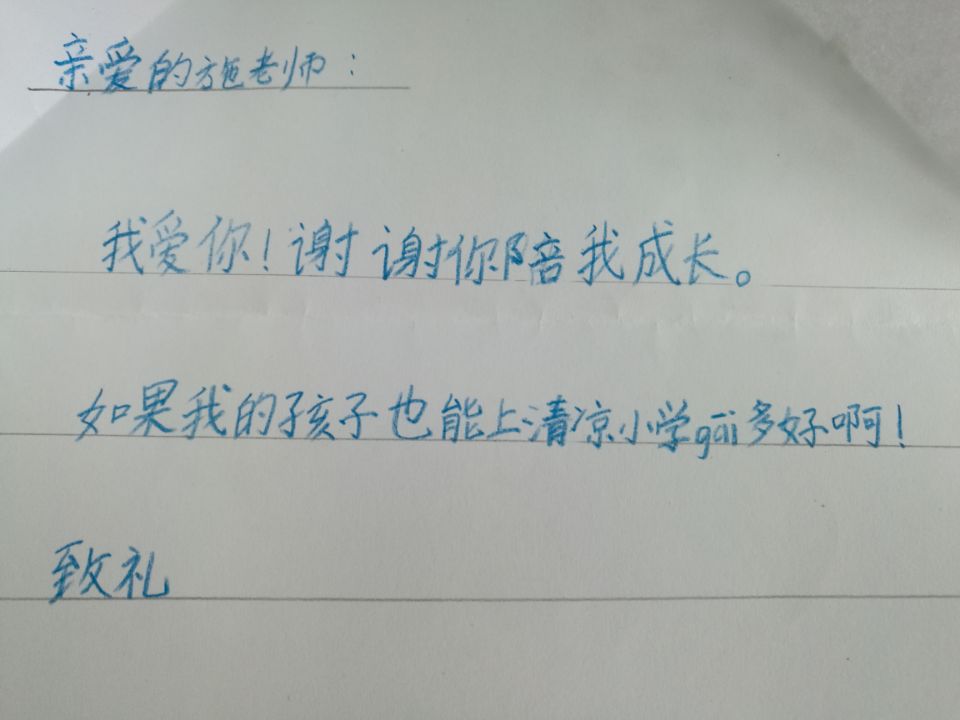 亲爱的施老师：
我爱你！谢谢你陪我成长。
如果我的孩子也能上清凉小学gāi多好啊！
致礼